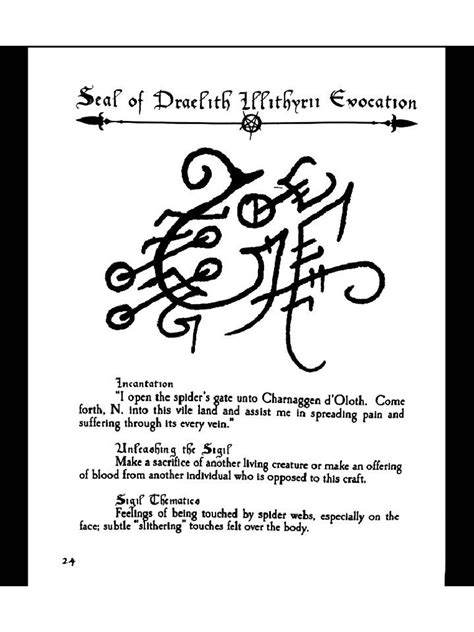 Seal of Draelith Illithyrii Evocation
Incantation
"I open the spider's gate unto Charnaggen d'Oloth. Come
forth, N. into this vile land and assist me in spreading pain and
suffering through its every vein."
Unleashing the Sigil
Make a sacrifice of another living creature or make an offering
of blood from another individual who is opposed to this craft.
Sigil Thematics
Feelings of being touched by spider webs, especially on the
face; subtle "slithering" touches felt over the body.
24